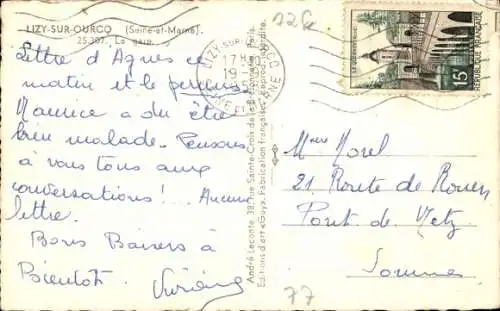 LIZY-SUR-OURCQ (Seine-et-Marne).
25.307. La gare.
Lettre d'Agnès ce
matin et le
Maurice a du être
bien malade. Pensons
à vous tous aux
conversations! .. Aucune
lettre.
Bons Baisers à
Bientôt.
André Leconte, 38, rue Sainte-Croix de la Bretonnerie, Paris.
Editions d'art «Guy». Fabrication française. Reproduction interdite.
LIZY-SUR-OURCQ
17 H
19
POSTES
REPUBLIQUE FRANÇAISE
15F
Mme Morel
21 Route de Rouen
Pont de Metz
Somme
77